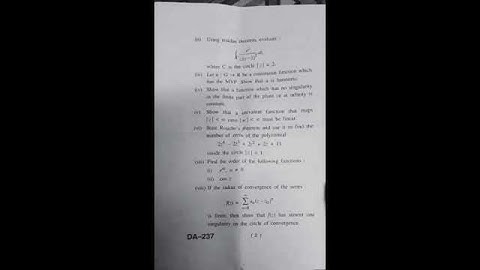 (ii) Using residue theorem, evaluate :
where C is the circle |z| = 2.
(iii) Let u : G → R be a continuous function which
has the MVP. Show that u is harmonic.
(iv) Show that a function which has no singularity
in the finite part of the plane or at infinity is
constant.
(v) Show that a univalent function that maps
|z| < ∞ onto |w| < ∞ must be linear.
(vi) State Rouche's theorem and use it to find the
number of zeros of the polynomial
inside the circle |z| < 1.
(vii) Find the order of the following functions :
(i)
(ii) cos z
(viii) If the radius of convergence of the series
is finite, then show that f(z) has atleast one
singularity on the circle of convergence.
DA-237
( 2 )